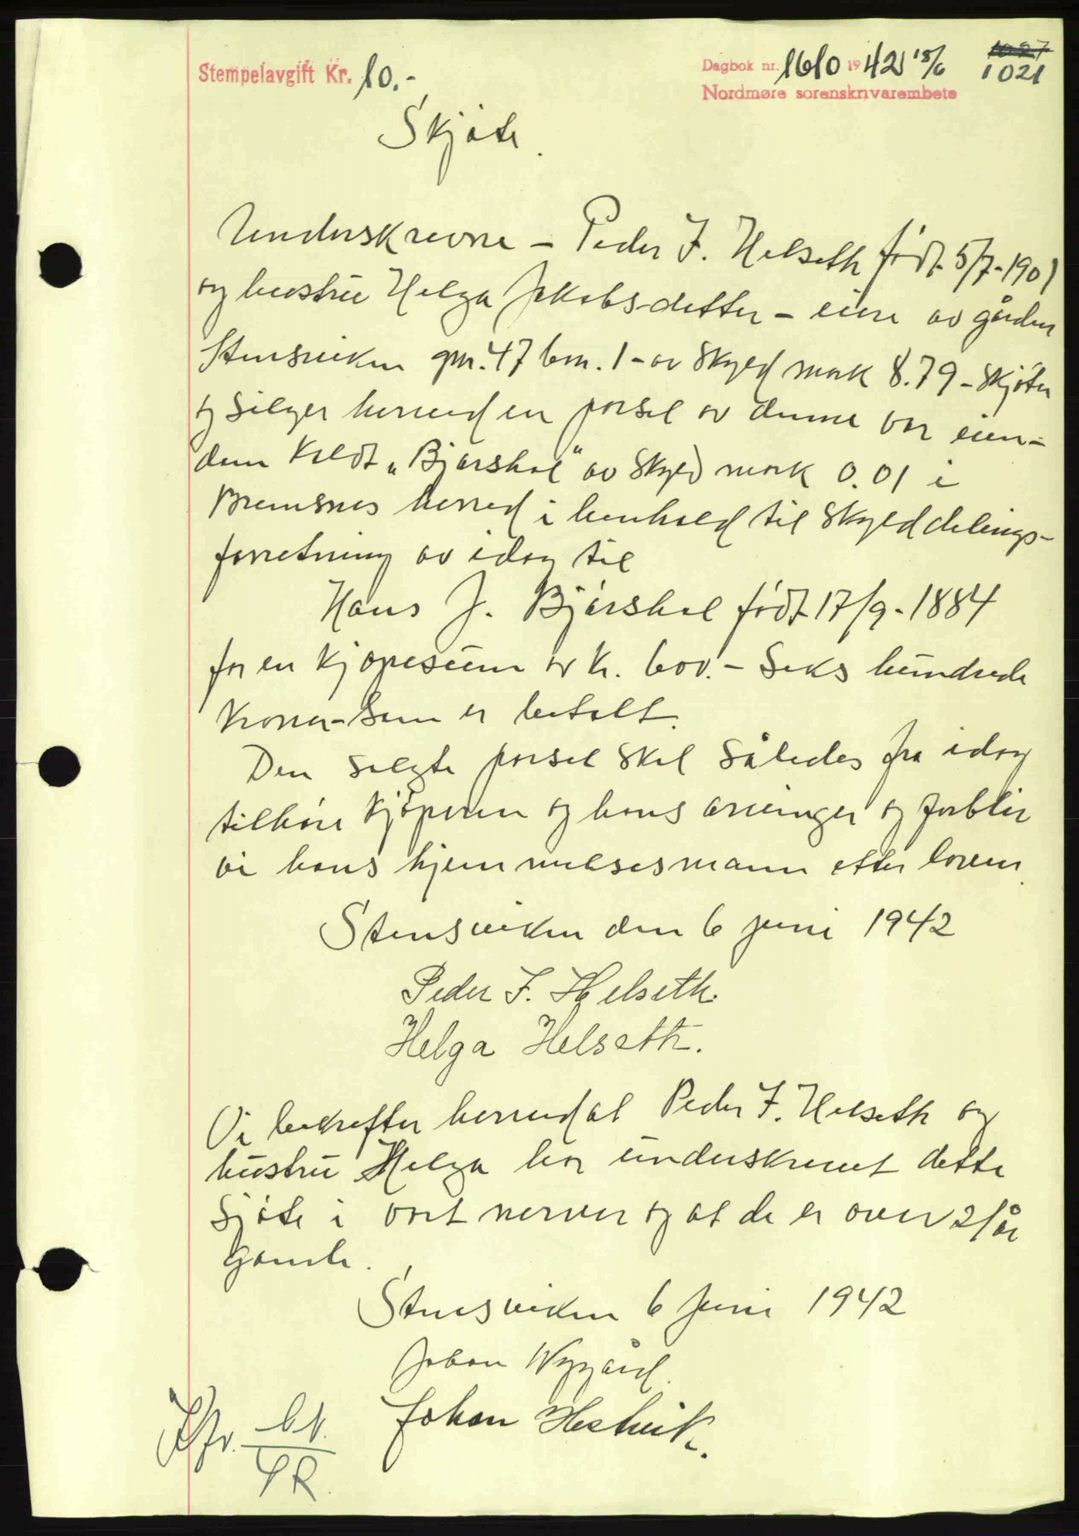 Stempelavgift Kr. 10.-
Dagbok nr. 1610 1942 15/6
1027
1021
Nordmøre sorenskrivarembete
Skjøte.
Underskrevne - Peder F. Helseth født 5/7-1901
og hustru Helga Jakobsdatter - eiere av gården
Stensviken gnr. 47 bnr. 1 - av skyld mark 8.79 - skjøter
og selger herved en parsel av denne vor eien-
dom kaldt „Bjørshol" av skyld mark 0.01 i
Bremsnes herred i henhold til skylddelings-
forretning av idag til
Hans J. Bjørshol født 17/9-1884
for en kjøpesum av kr. 600.- Seks hundrede
kroner - som er betalt.
Den solgte parsel skal således fra idag
tilhøre kjøperen og hans arvinger og forblir
vi hans hjemmelsesmann etter loven.
Stensviken den 6 juni 1942
Peder F. Helseth.
Helga Helseth.
Vi bekrefter herved at Peder F. Helseth og
hustru Helga har underskrevet dette
sjøte i vort nærver og at de er over 21 år
gamle.
Stensviken 6 Juni 1942
Johan Nygård.
Johan Hestvik.